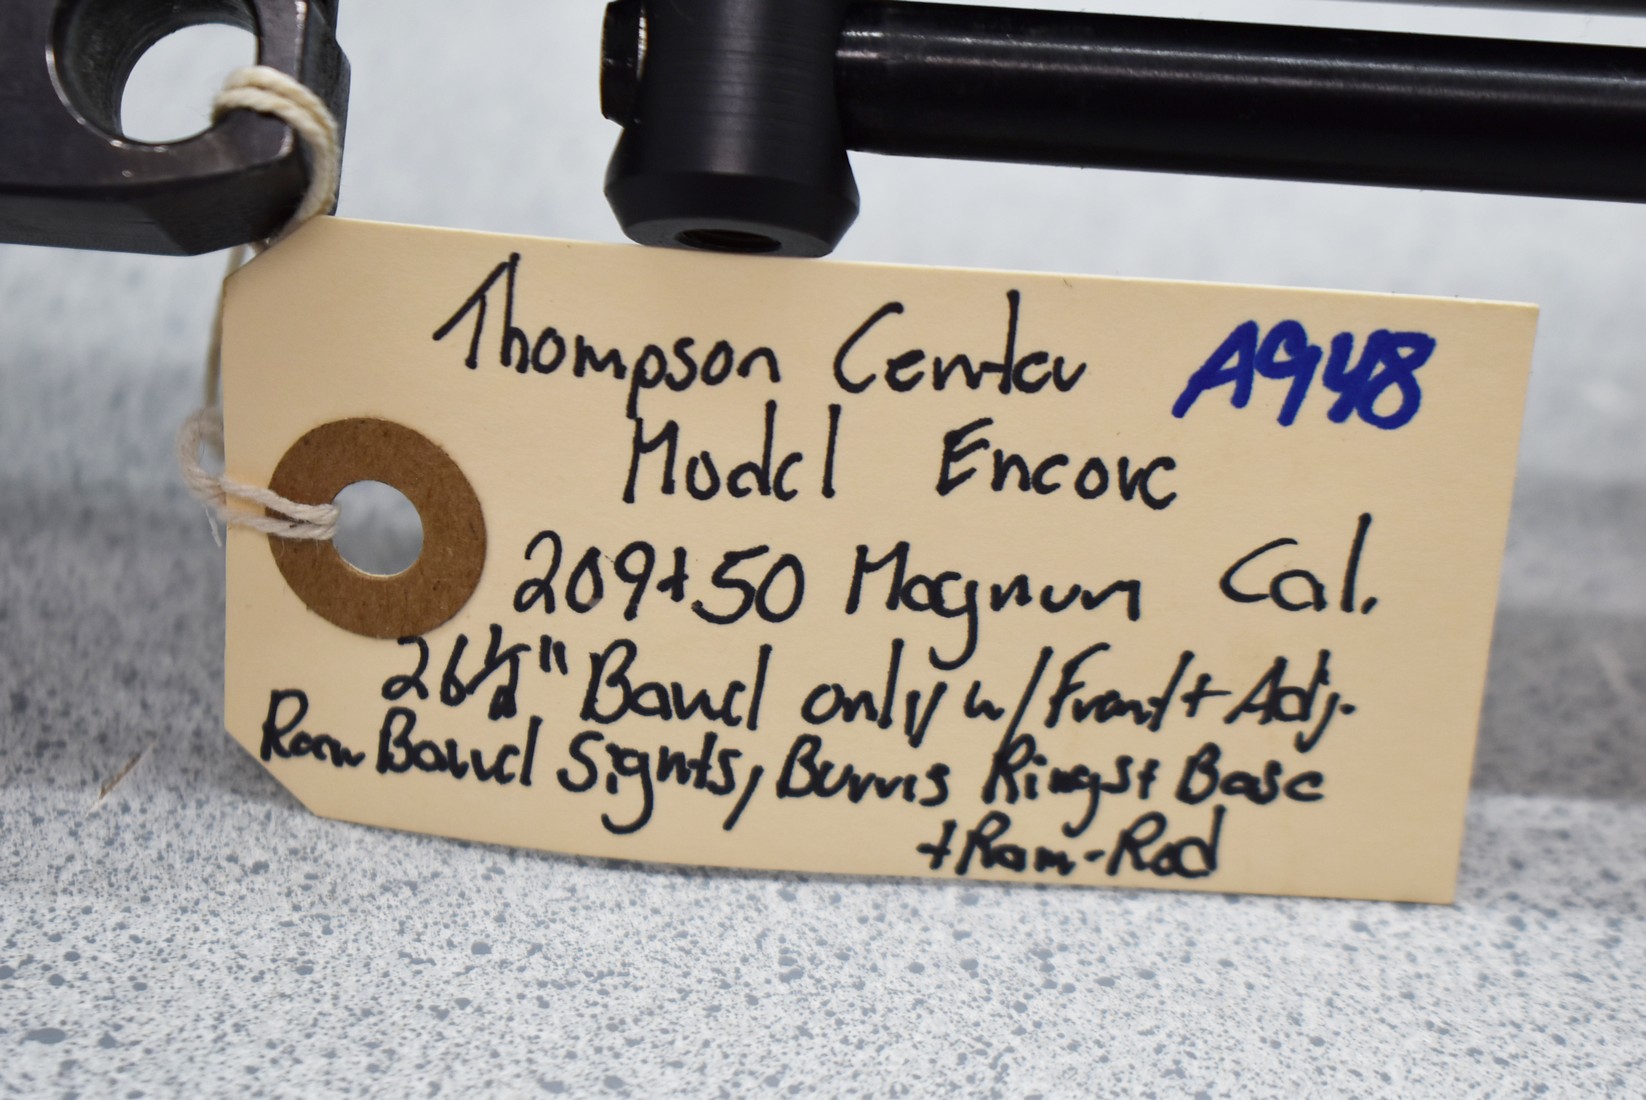 Thompson Center A948
Model Encore
209+50 Magnum Cal.
26½" Barrel only w/ Front + Adj.
Rear Barrel Sights, Burris Rings + Base
+ Ram-Rod